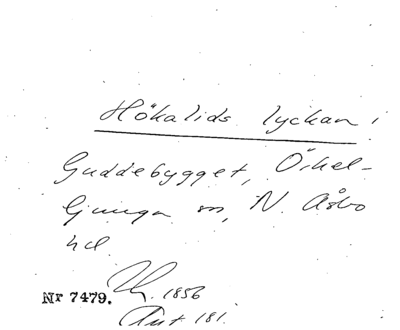 Hökalids lyckan i
Guddebygget, Örkel-
ljunga sn, N. Åsbo
hd
Nr 7479. 1856
Ant 181.